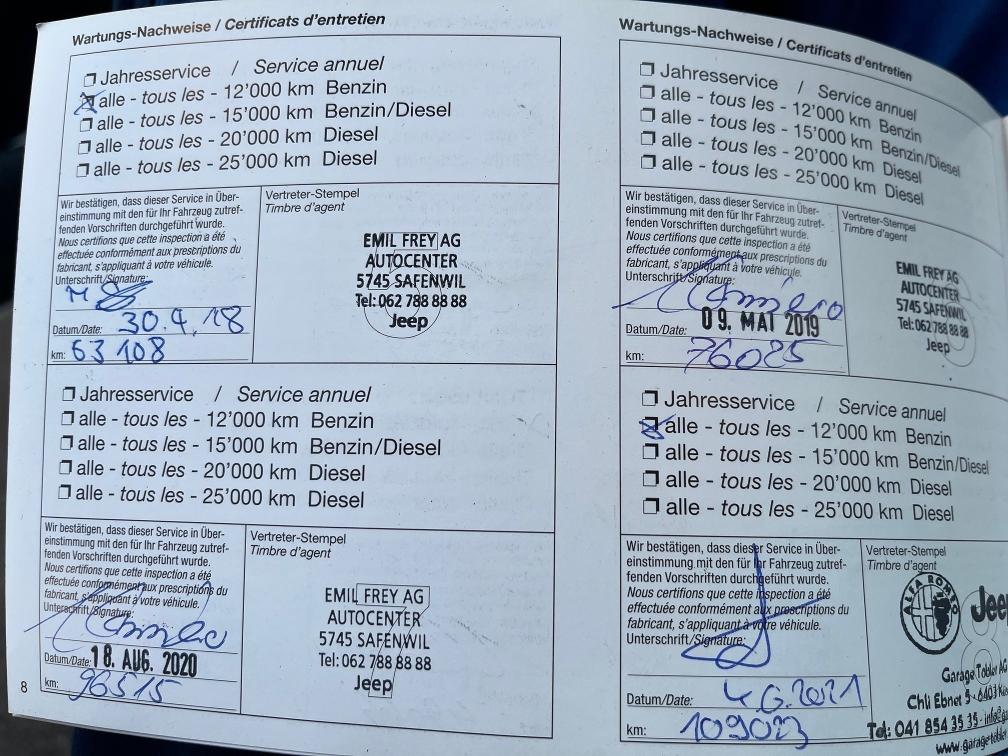 Wartungs-Nachweise / Certificats d'entretien
Jahresservice / Service annuel
alle - tous les - 12'000 km Benzin
alle - tous les - 15'000 km Benzin/Diesel
alle - tous les - 20'000 km Diesel
alle - tous les - 25'000 km Diesel
Wir bestätigen, dass dieser Service in Über-
einstimmung mit den für Ihr Fahrzeug zutref-
fenden Vorschriften durchgeführt wurde.
Nous certifions que cette inspection a été
effectuée conformément aux prescriptions du
fabricant, s'appliquant à votre véhicule.
Unterschrift/Signature:
Datum/Date: 30.4.18
km: 63108
Vertreter-Stempel
Timbre d'agent
EMIL FREY AG
AUTOCENTER
5745 SAFENWIL
Tel: 062 788 88 88
Jeep
Jahresservice / Service annuel
alle - tous les - 12'000 km Benzin
alle - tous les - 15'000 km Benzin/Diesel
alle - tous les - 20'000 km Diesel
alle - tous les - 25'000 km Diesel
Wir bestätigen, dass dieser Service in Über-
einstimmung mit den für Ihr Fahrzeug zutref-
fenden Vorschriften durchgeführt wurde.
Nous certifions que cette inspection a été
effectuée conformément aux prescriptions du
fabricant, s'appliquant à votre véhicule.
Unterschrift/Signature:
Datum/Date: 18. AUG. 2020
km: 96515
Vertreter-Stempel
Timbre d'agent
EMIL FREY AG
AUTOCENTER
5745 SAFENWIL
Tel: 062 788 88 88
Jeep
8
Wartungs-Nachweise / Certificats d'entretien
Jahresservice / Service annuel
alle - tous les - 12'000 km Benzin
alle - tous les - 15'000 km Benzin/Diesel
alle - tous les - 20'000 km Diesel
alle - tous les - 25'000 km Diesel
Wir bestätigen, dass dieser Service in Über-
einstimmung mit den für Ihr Fahrzeug zutref-
fenden Vorschriften durchgeführt wurde.
Nous certifions que cette inspection a été
effectuée conformément aux prescriptions du
fabricant, s'appliquant à votre véhicule.
Unterschrift/Signature:
Datum/Date: 09. MAI 2019
km: 76025
Vertreter-Stempel
Timbre d'agent
EMIL FREY AG
AUTOCENTER
5745 SAFENWIL
Tel: 062 788 88 88
Jeep
Jahresservice / Service annuel
alle - tous les - 12'000 km Benzin
alle - tous les - 15'000 km Benzin/Diesel
alle - tous les - 20'000 km Diesel
alle - tous les - 25'000 km Diesel
Wir bestätigen, dass dieser Service in Über-
einstimmung mit den für Ihr Fahrzeug zutref-
fenden Vorschriften durchgeführt wurde.
Nous certifions que cette inspection a été
effectuée conformément aux prescriptions du
fabricant, s'appliquant à votre véhicule.
Unterschrift/Signature:
Datum/Date: 4.6.2021
km: 109023
Vertreter-Stempel
Timbre d'agent
ALFA ROMEO
Jeep
Garage Tobler
Chli Ebnet 5 · 6403
Tel: 041 854 35 35 ·